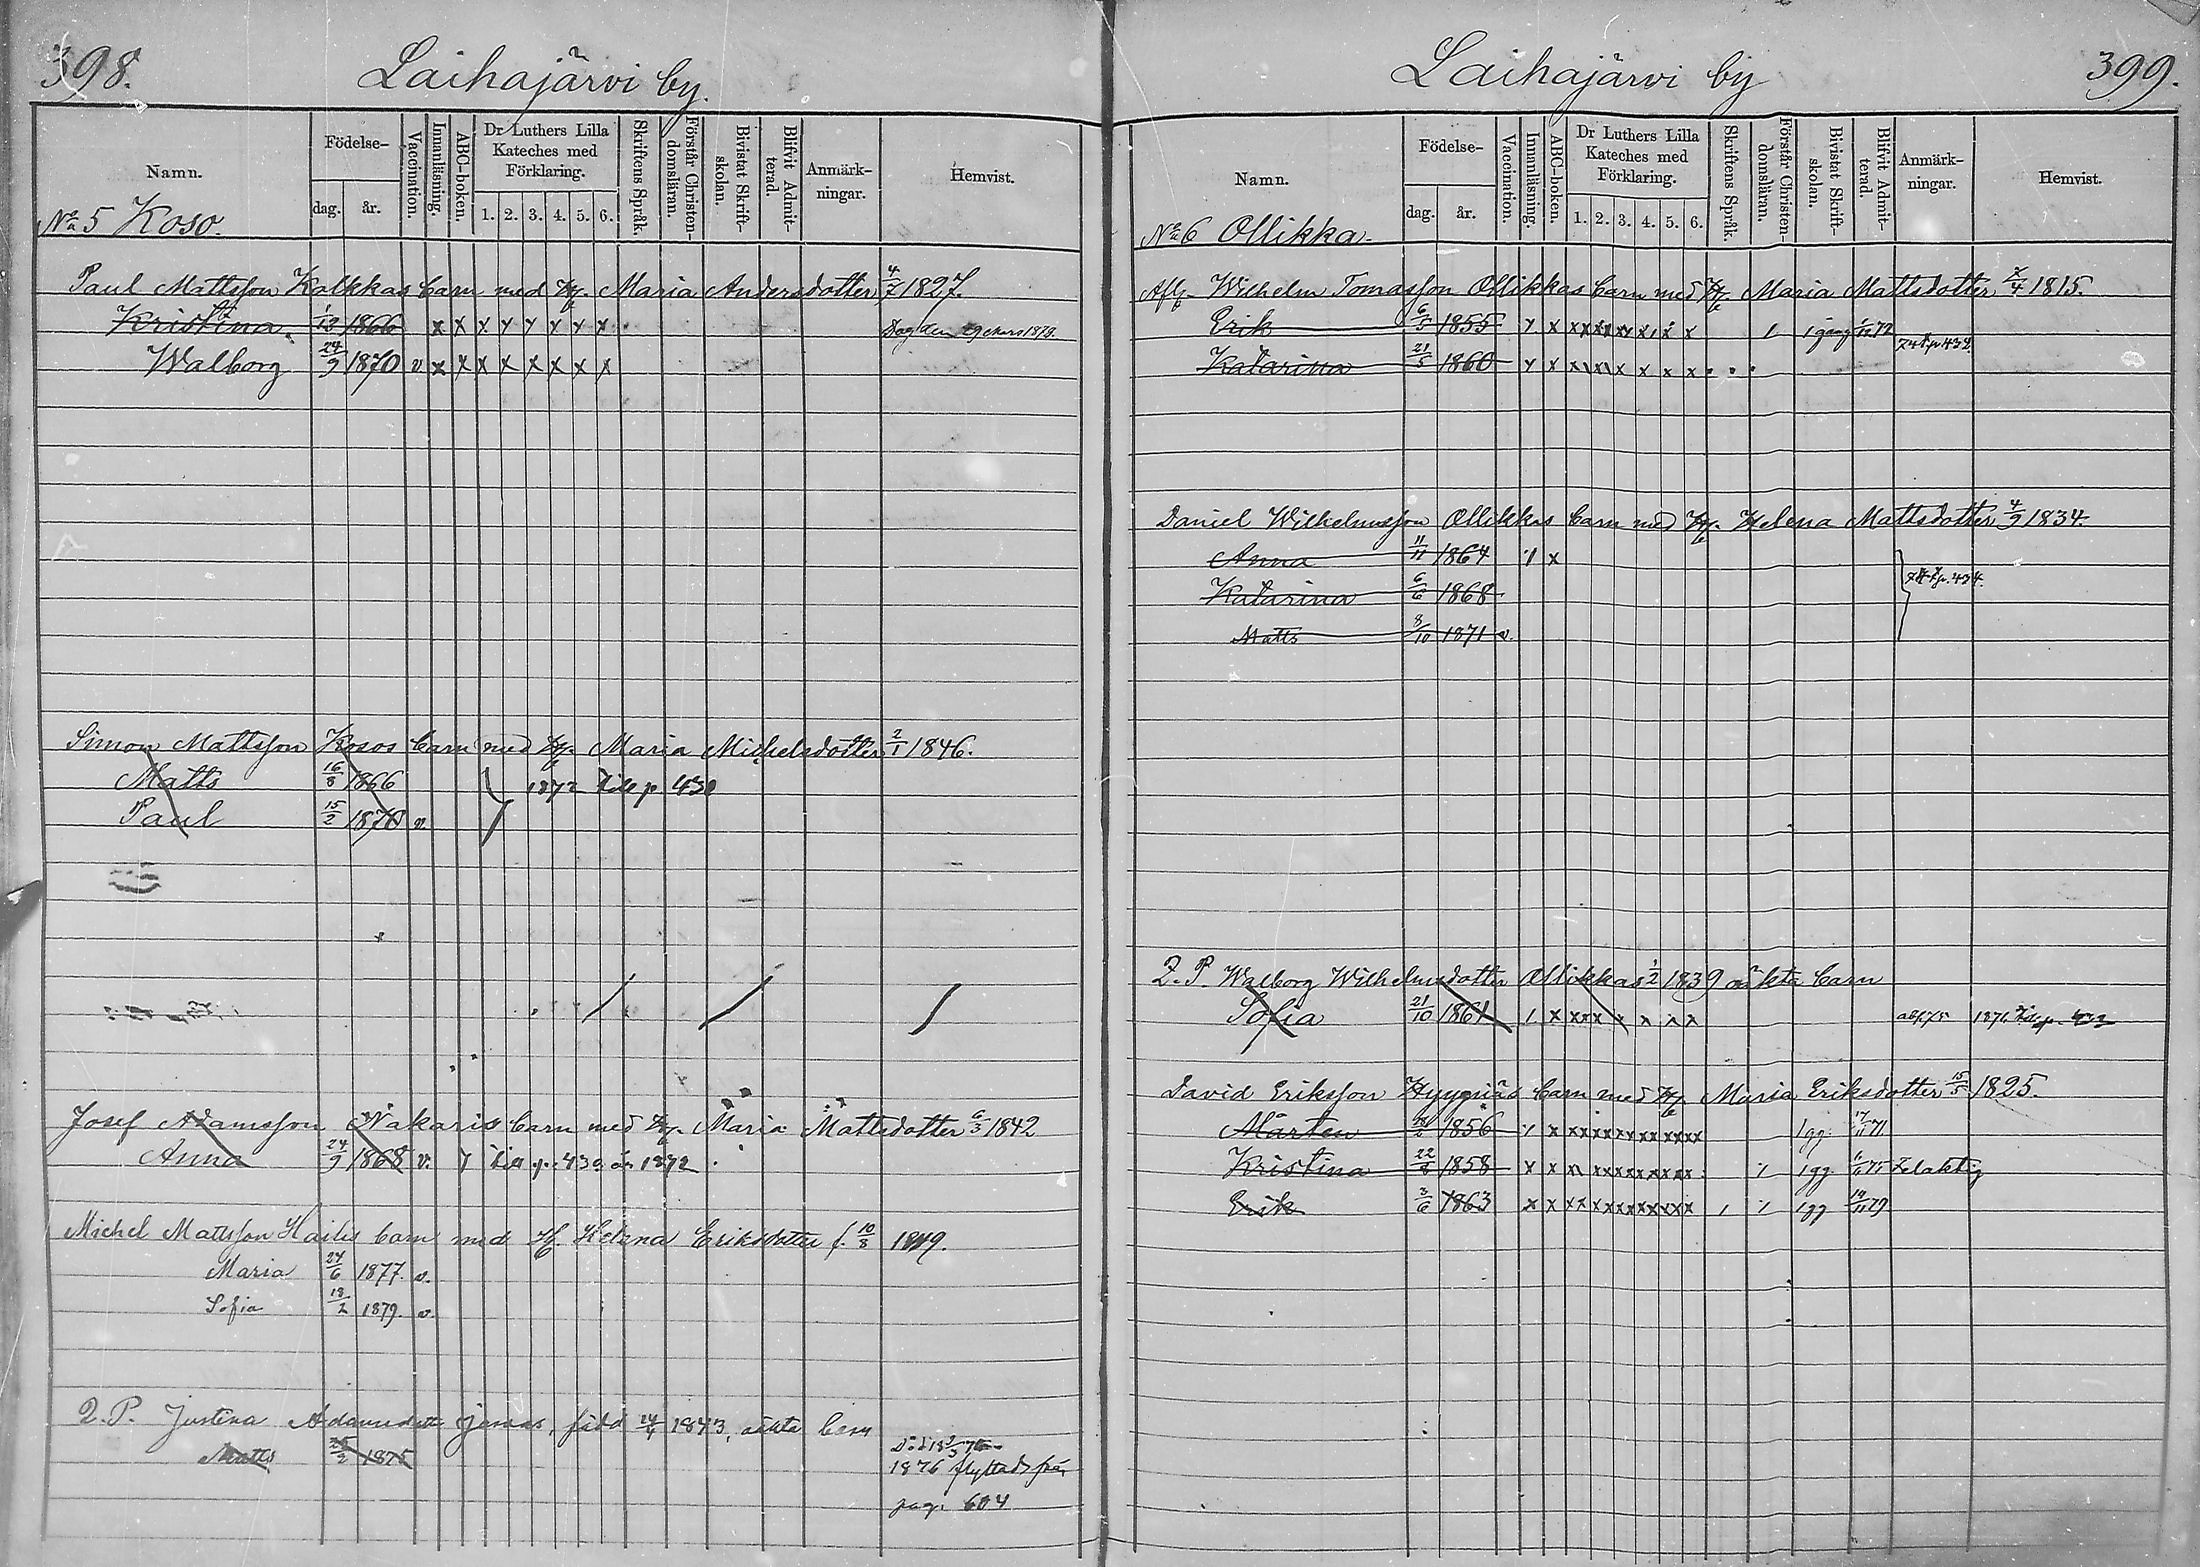 398.
Laihajärvi by.
Namn.
Födelse-
dag.
år.
Vaccination.
Innanläsning.
ABC-boken.
Dr Luthers Lilla
Kateches med
Förklaring.
1. 2. 3. 4. 5. 6.
Skriftens Språk.
Förstår Christen-
domsläran.
Bivistat Skrift-
skolan.
Blifvit Admit-
terad.
Anmärk-
ningar.
Hemvist.
No 5 Koso.
Paul Mattsson Kalkkas barn med H. Maria Andersdotter 4/7 1827.
Kristina 1866 x x x x x x x x
Walborg 24/9 1870 v x x x x x x x x
Simon Mattsson Kosos barn med H. Maria Michelsdotter 2/1 1846.
Matts 16/8 1866 1872 till p. 430
Paul 15/2 1870 v.
Josef Adamsson Wakaris barn med H. Maria Mattsdotter 6/3 1842
Anna 24/9 1868 v. till p. 430 år 1872
Michel Mattsson barn med H. Helena Eriksdotter f. 10/8
Maria 24/6 1877. v.
Sofia 18/2 1879. v.
Q. P. Justina född 1843, oäkta barn
Matts 1875
1876 flyttad från
pag. 604
Laihajärvi by
399.
Namn.
Födelse-
dag.
år.
Vaccination.
Innanläsning.
ABC-boken.
Dr Luthers Lilla
Kateches med
Förklaring.
1. 2. 3. 4. 5. 6.
Skriftens Språk.
Förstår Christen-
domsläran.
Bivistat Skrift-
skolan.
Blifvit Admit-
terad.
Anmärk-
ningar.
Hemvist.
No 6 Ollikka.
Wilhelm Tomasson Ollikkas barn med H. Maria Mattsdotter 1815.
Erik 6/5 1855 1 gång
Katarina 21/5 1860
Daniel Wilhelmsson Ollikkas barn med H. Helena Mattsdotter 4/9 1834.
Anna 11/11 1864 x
Katarina 6/6 1868
Matts 8/10 1871 v.
Q. P. Walborg Wilhelmsdotter Ollikkas 1/2 1839 oäkta barn
Sofia 21/10 1861
David Eriksson Hyypiäs barn med H. Maria Eriksdotter 15/5 1825.
Mårten 1856 1 gg.
Kristina 22/8 1858 1 gg.
Erik 3/6 1863 1 gg